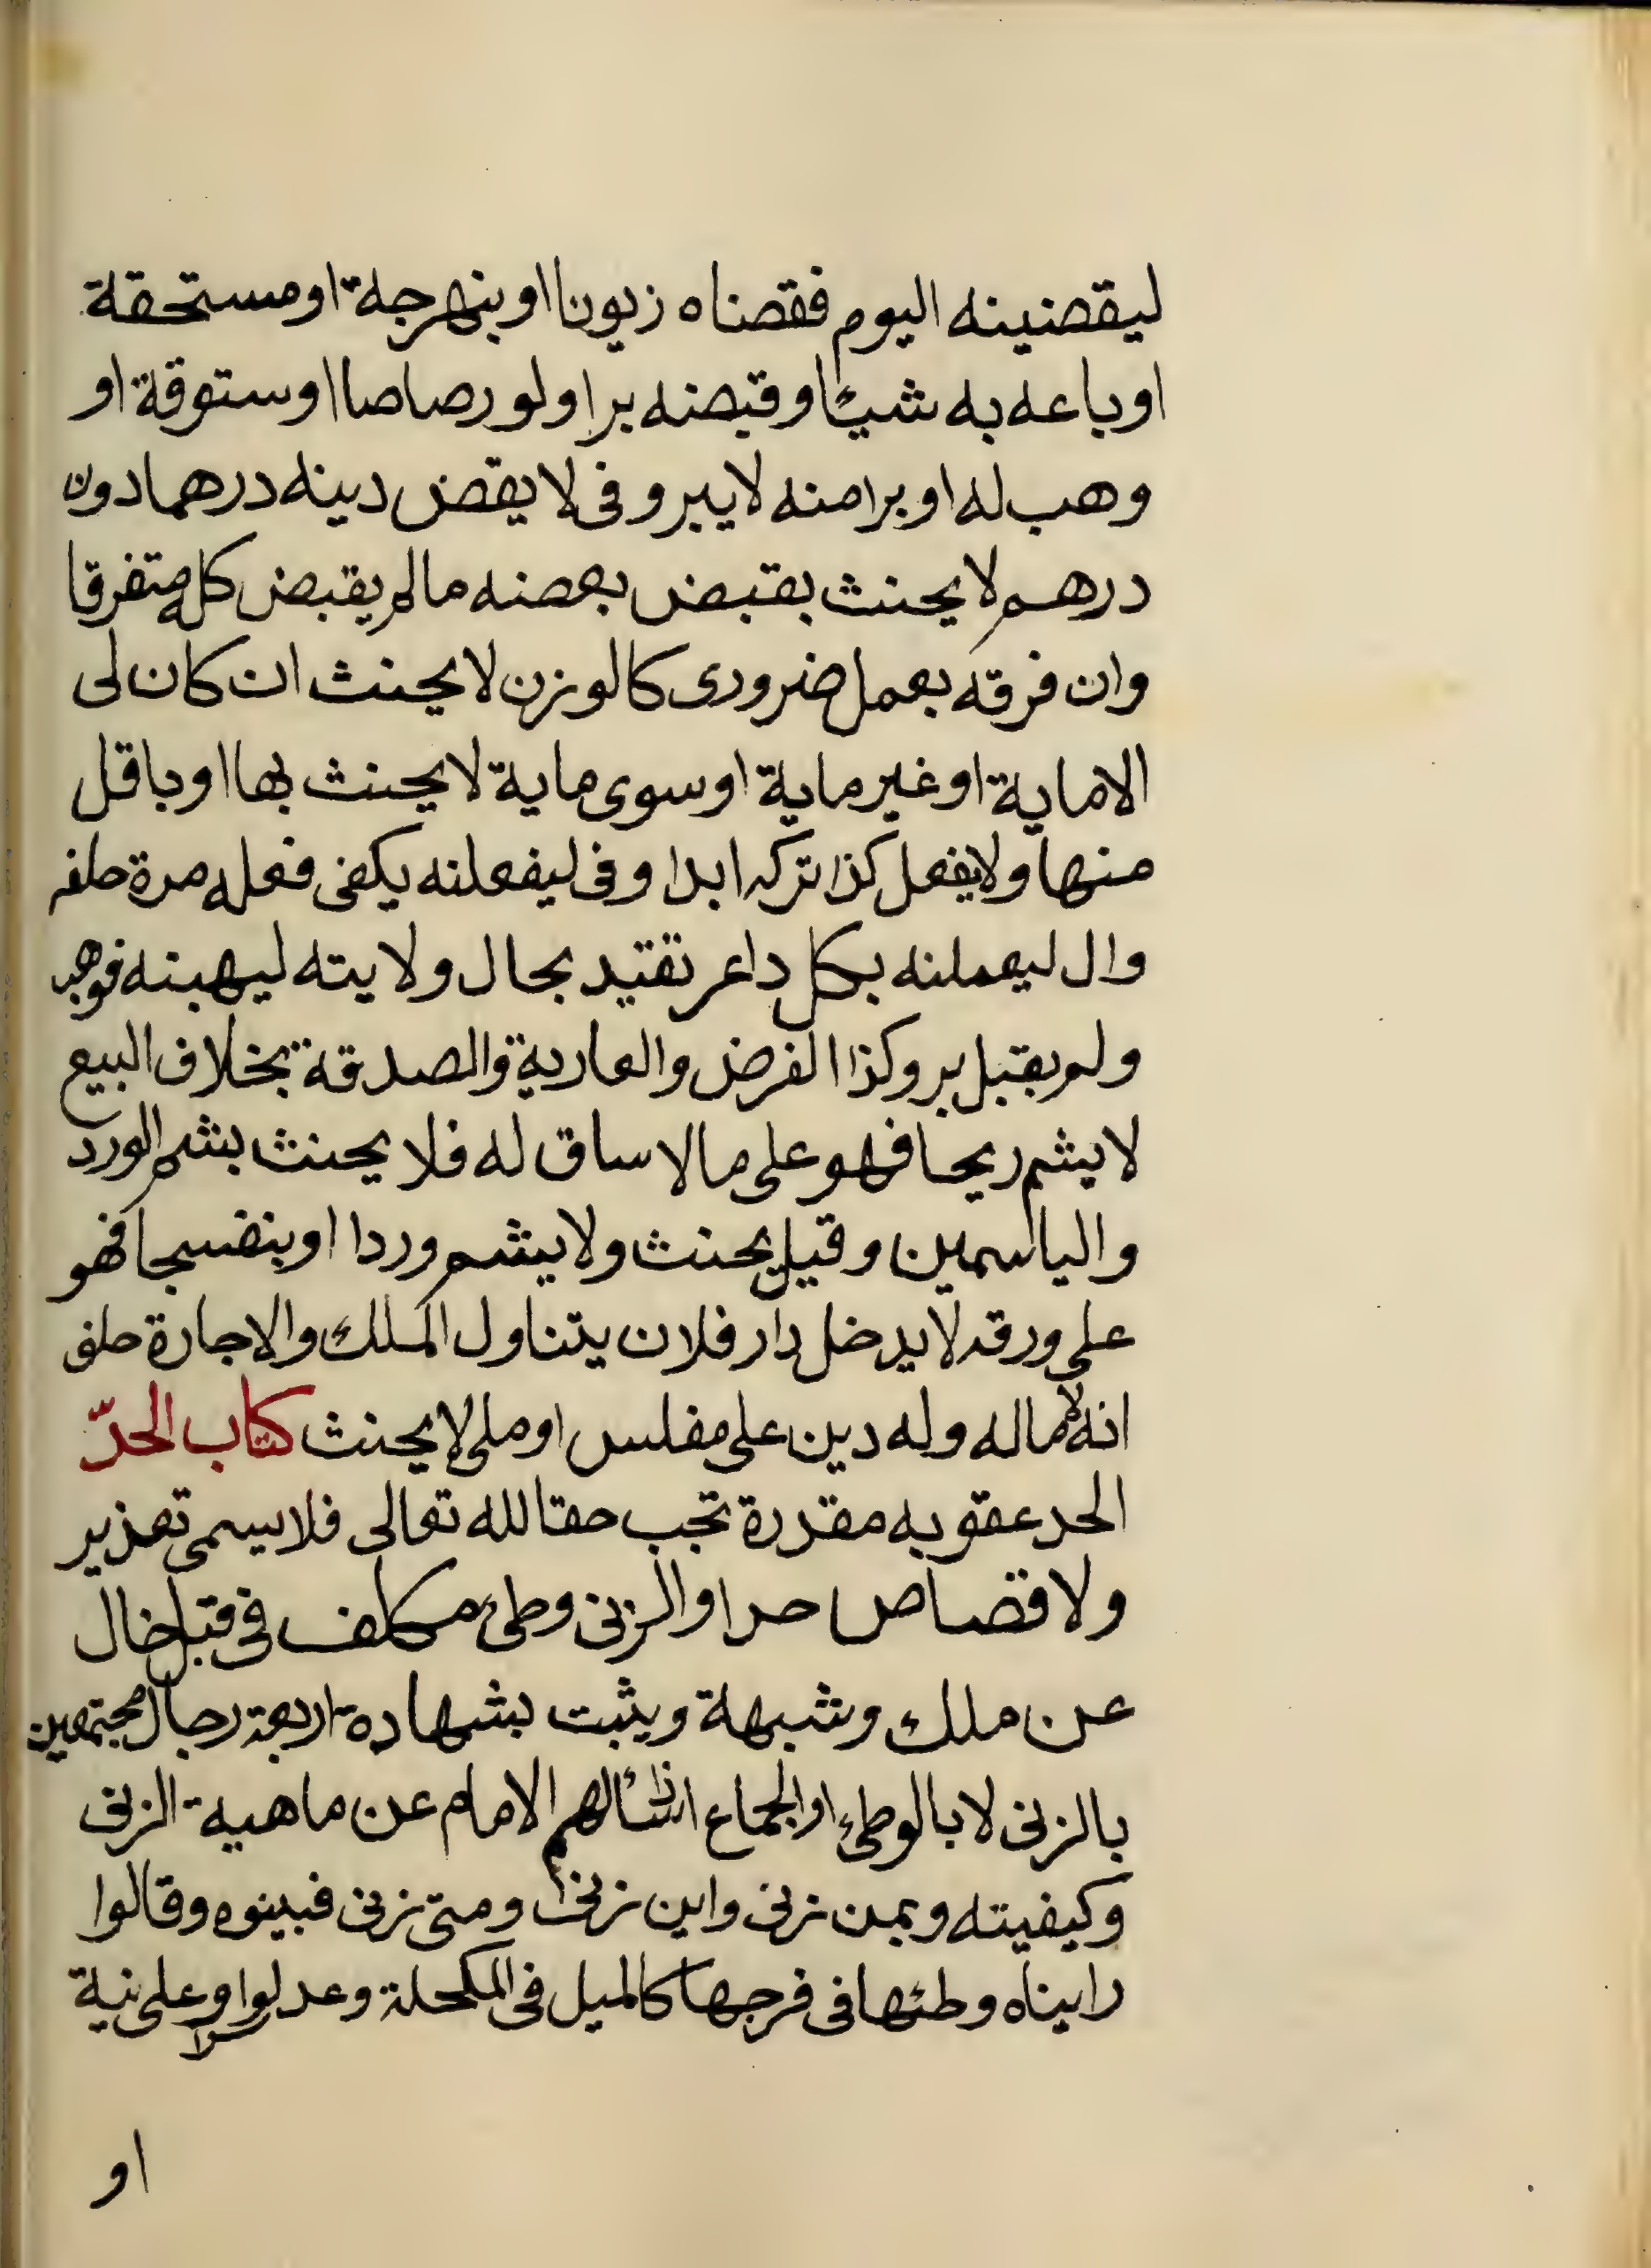 ليقضينه اليوم فقضاه زيونا او بنهرجة او مستحقة
او باعه به شيئا وقبضه بر او لو رصاصا او ستوقة او
وهب له او برا منه لا يبر وفى لا يقض دينه درهما دون
درهم لا يحنث بقبض بعضه ما لم يقبض كله متفرقا
وان فرقه بعمل ضرورى كالوزن لا يحنث ان كان لى
الا ماية او غير ماية او سوى ماية لا يحنث بها او باقل
منها ولا يفعل كذا تركه ابدا وفى ليفعلنه يكفى فعله مرة حلفه
وال ليعملنه بكل داعر تقتيد بحال ولايته ليهبنه فوهبه
ولم يقبل بر وكذا الفرض والعارية والصدقة بخلاف البيع
لا يشم ريحا فهو على ما لا ساق له فلا يحنث بشم الورد
والياسمين وقيل يحنث ولا يشم وردا او بنفسجا فهو
على ورقه لا يدخل دار فلان يتناول الملك والاجارة حلف
انه لا مال له وله دين على مفلس او ملى لا يحنث كتاب الحدّ
الحد عقوبه مقدرة تجب حقا لله تعالى فلا يسمى تعذير
ولا قصاص حدا والزنى وطئ مكلف فى قبل خال
عن ملك وشبهة ويثبت بشهادة اربعة رجال مجتمعين
بالزنى لا بالوطئ او الجماع اذا سألهم الامام عن ماهية الزنى
وكيفيته وبمن زنى واين زنى ومتى زنى فبينوه وقالوا
رايناه وطئها فى فرجها كالميل فى المكحلة وعدلوا سرا وعلى نية
او